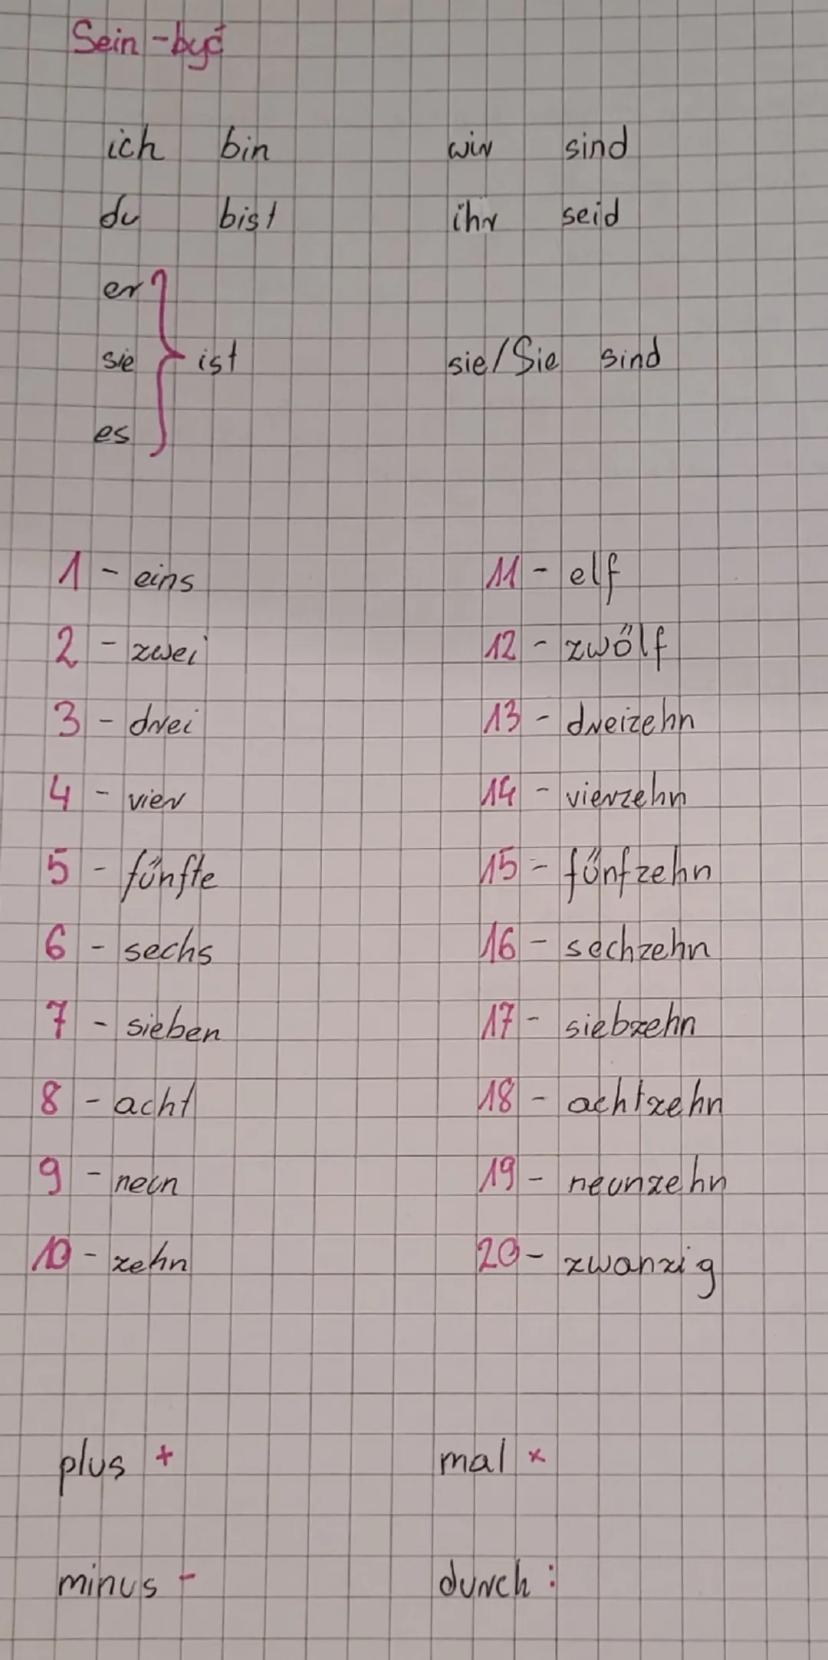 Sein - być
ich bin wir sind
du bist ihr seid
er
sie ist sie/Sie sind
es
1 - eins 11 - elf
2 - zwei 12 - zwölf
3 - drei 13 - dreizehn
4 - vier 14 - vierzehn
5 - fünfte 15 - fünfzehn
6 - sechs 16 - sechzehn
7 - sieben 17 - siebzehn
8 - acht 18 - achtzehn
9 - neun 19 - neunzehn
10 - zehn 20 - zwanzig
plus + mal ×
minus - durch :